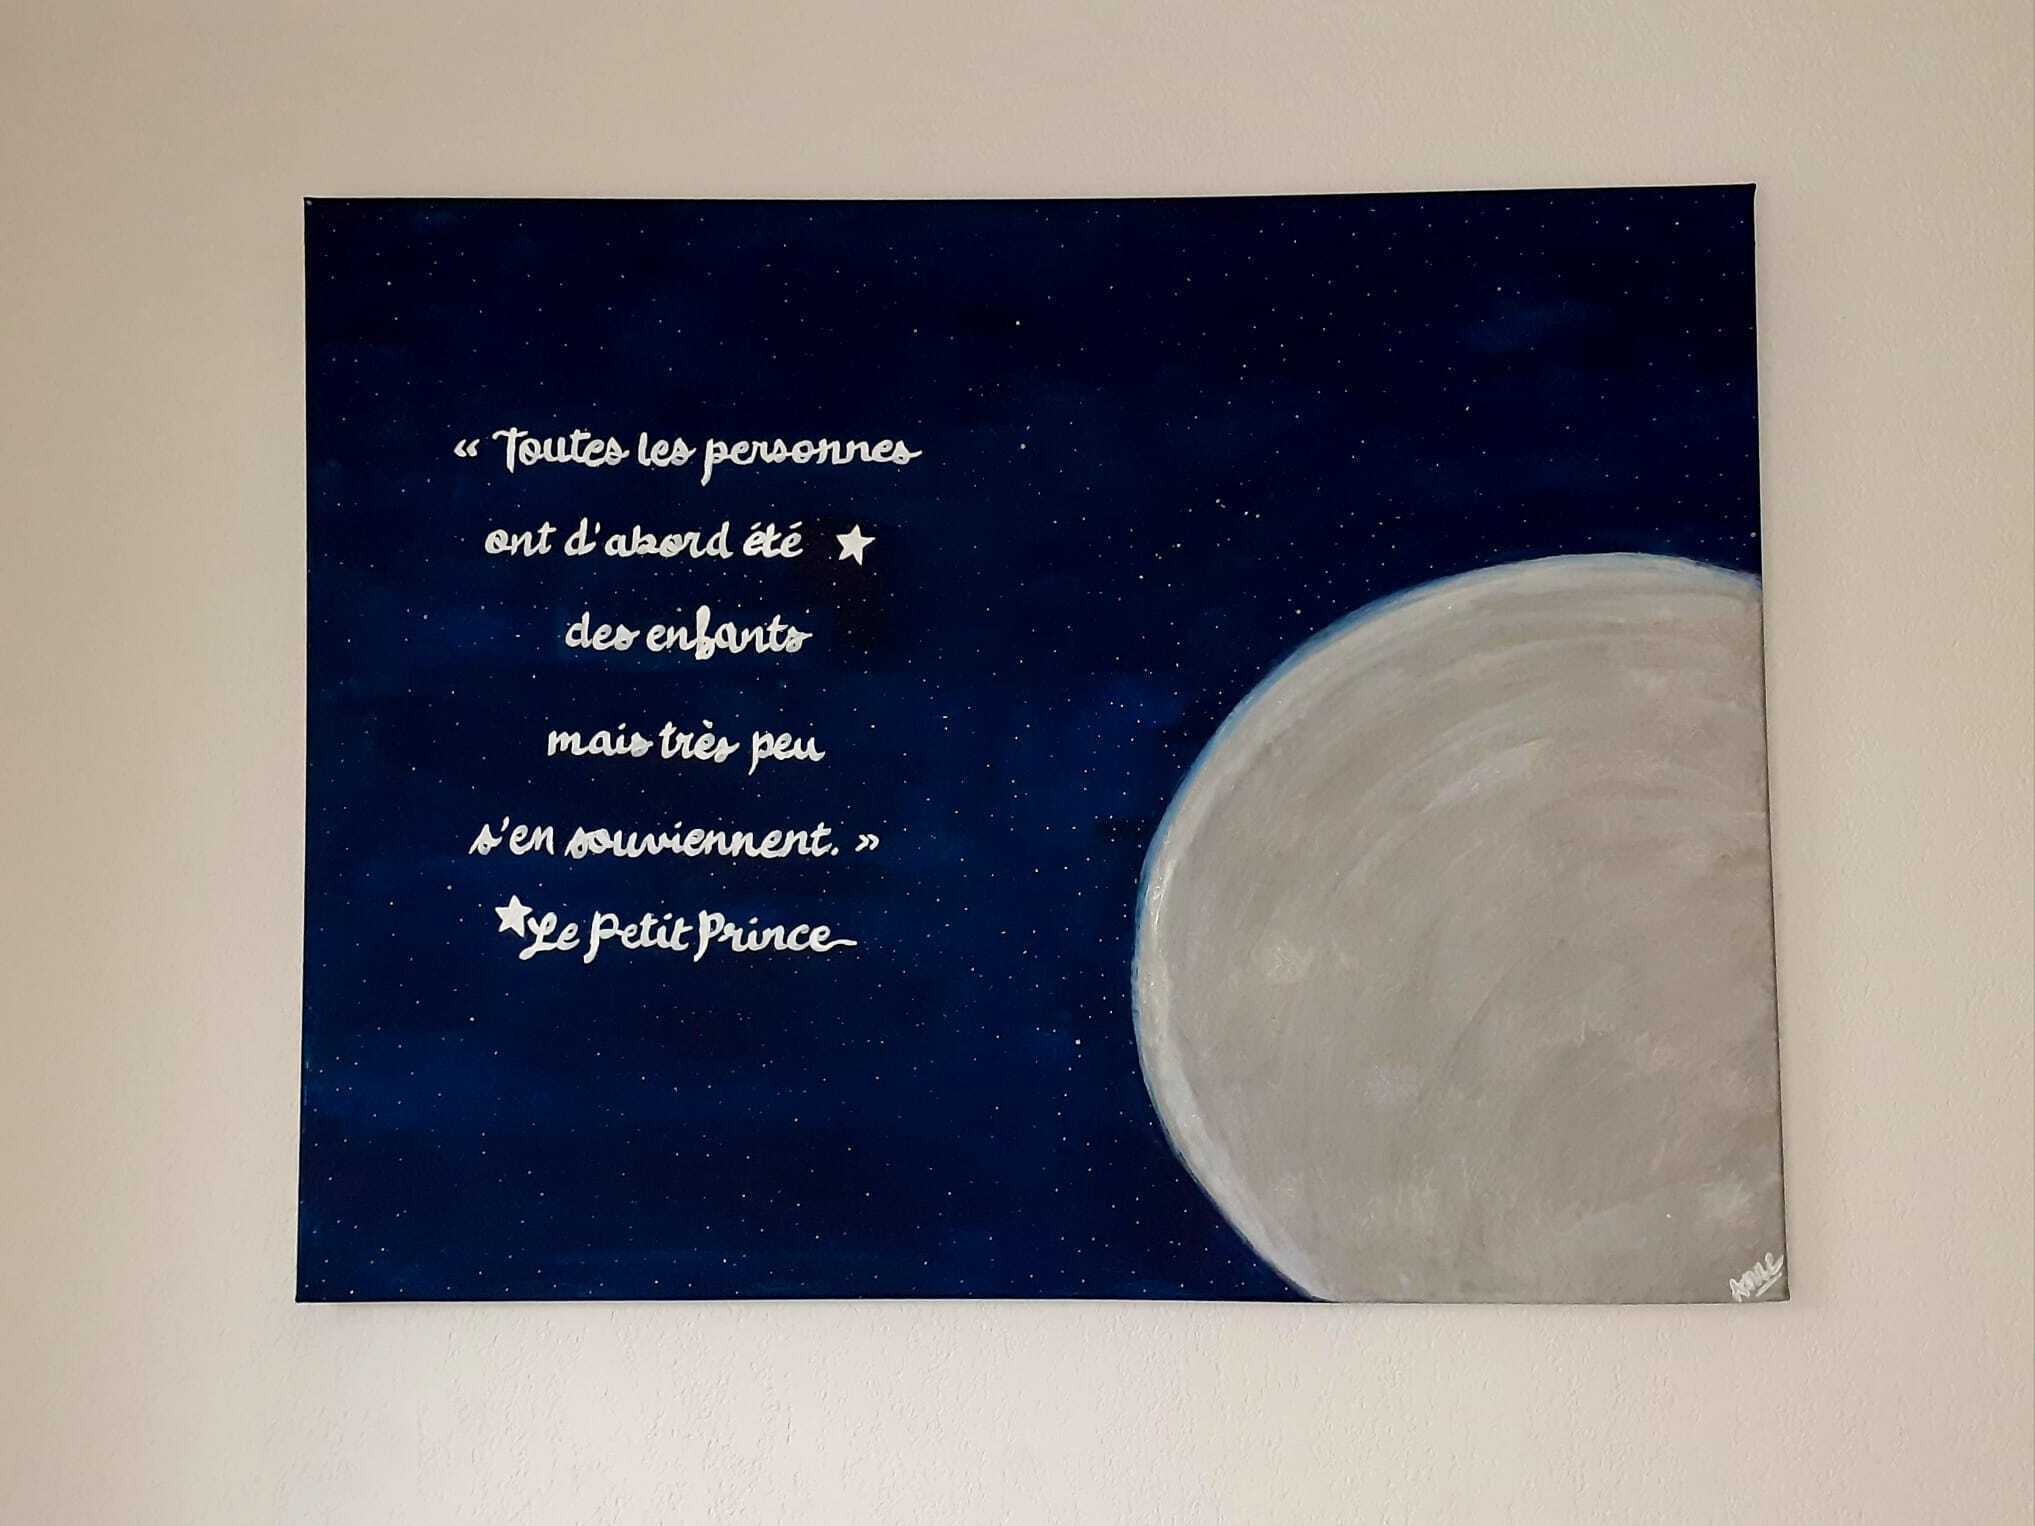 « Toutes les personnes
ont d'abord été
des enfants
mais très peu
s'en souviennent. »
Le Petit Prince
Anne